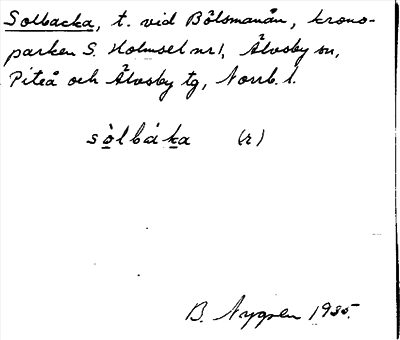 Solbacka, t. vid Bölsmanån, krono-
parken S. Holmsel nr 1, Älvsby sn,
Piteå och Älvsby tg, Norrb. l.
sòlbáka (r)
B. Nygren 1935.